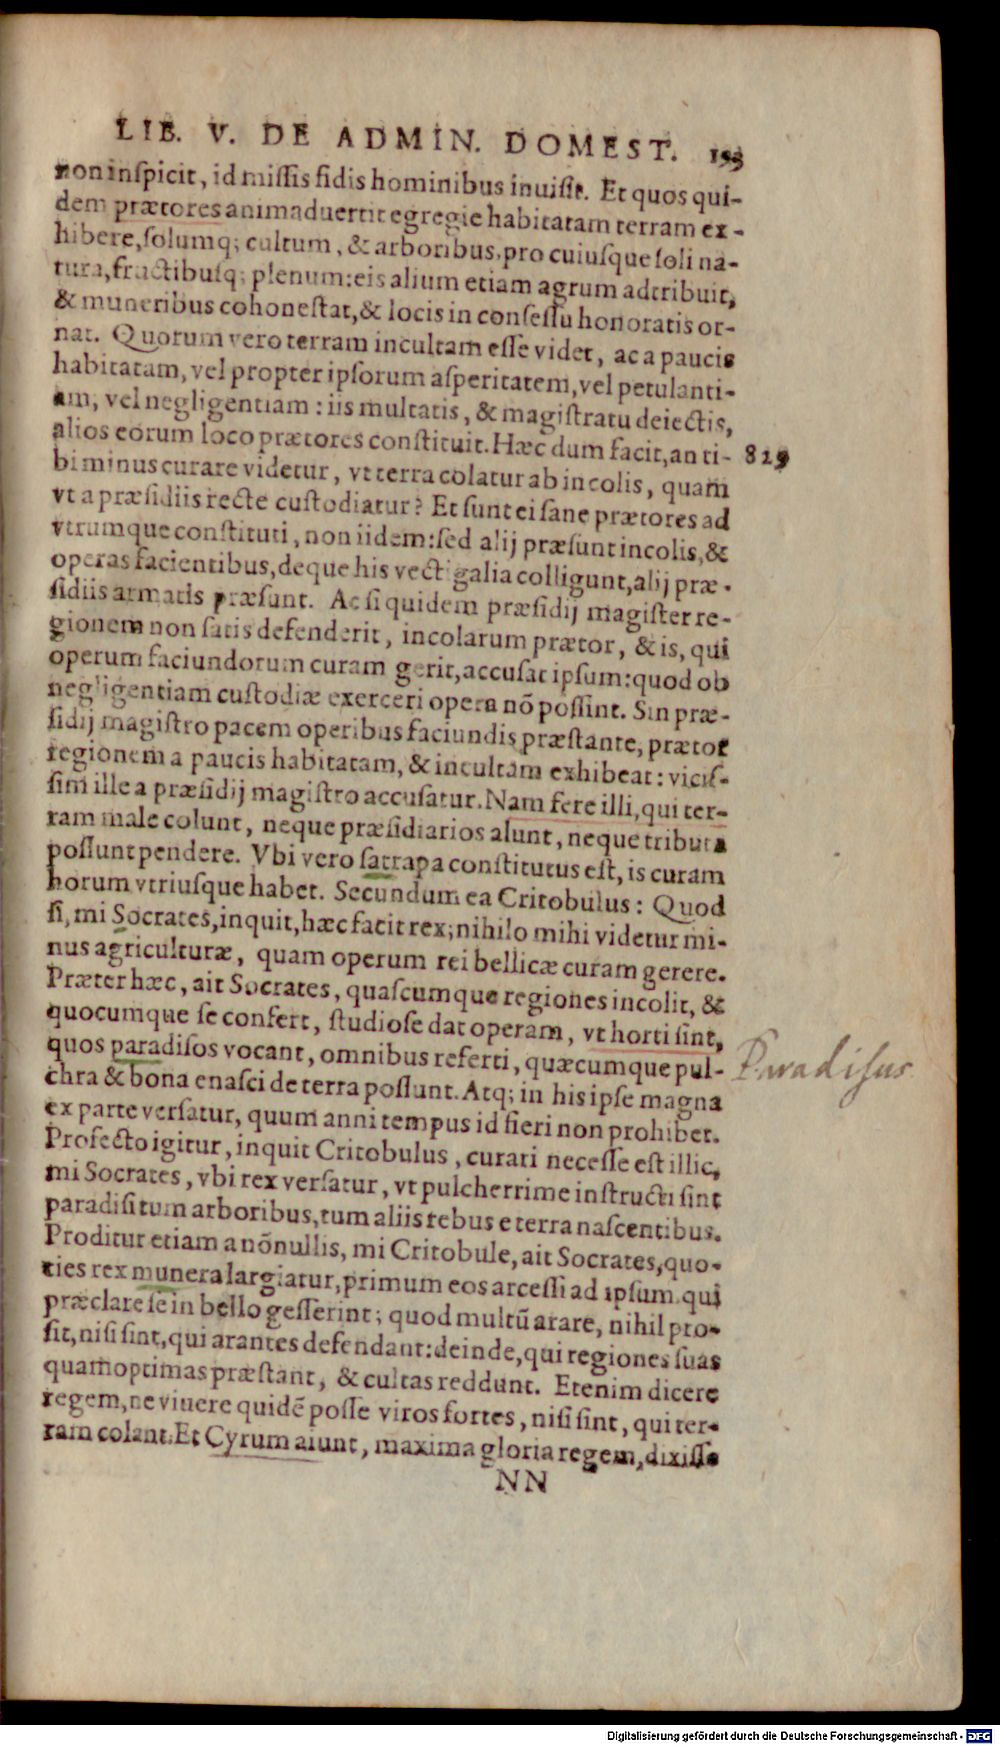 LIB. V. DE ADMIN. DOMEST.
non inſpicit, id miſſis fidis hominibus inuiſit. Et quos qui-
dem prætores animaduertit egregie habitatam terram ex-
hibere, ſolumq; cultum, & arboribus, pro cuiuſque ſoli na-
tura, fructibuſq; plenum: eis alium etiam agrum adtribuit,
& muneribus cohoneſtat, & locis in conſeſſu honoratis or-
nat. Quorum vero terram incultam eſſe videt, ac a paucis
habitatam, vel propter ipſorum aſperitatem, vel petulanti-
am, vel negligentiam: iis multatis, & magiſtratu deiectis,
alios eorum loco prætores conſtituit. Hæc dum facit, an ti- 829
bi minus curare videtur, vt terra colatur ab incolis, quam
vt a præſidiis recte cuſtodiatur? Et ſunt ei ſane prætores ad
vtrumque conſtituti, non iidem: ſed alij præſunt incolis, &
operas facientibus, deque his vectigalia colligunt, alij præ-
ſidiis armatis præſunt. Ac ſi quidem præſidij magiſter re-
gionem non ſatis defenderit, incolarum prætor, & is, qui
operum faciundorum curam gerit, accuſat ipſum: quod ob
negligentiam cuſtodiæ exerceri opera nõ poſſint. Sin præ-
ſidij magiſtro pacem operibus faciundis præſtante, prætor
regionem a paucis habitatam, & incultam exhibeat: viciſ-
ſim ille a præſidij magiſtro accuſatur. Nam fere illi, qui ter-
ram male colunt, neque præſidiarios alunt, neque tributa
poſſunt pendere. Vbi vero ſatrapa conſtitutus eſt, is curam
horum vtriuſque habet. Secundum ea Critobulus: Quod
ſi, mi Socrates, inquit, hæc facit rex; nihilo mihi videtur mi-
nus agriculturæ, quam operum rei bellicæ curam gerere.
Præter hæc, ait Socrates, quaſcumque regiones incolit, &
quocumque ſe confert, ſtudioſe dat operam, vt horti ſint,
quos paradiſos vocant, omnibus referti, quæcumque pul-
Paradisus
chra & bona enaſci de terra poſſunt. Atq; in his ipſe magna
ex parte verſatur, quum anni tempus id fieri non prohibet.
Profecto igitur, inquit Critobulus, curari neceſſe eſt illic,
mi Socrates, vbi rex verſatur, vt pulcherrime inſtructi ſint
paradiſi tum arboribus, tum aliis rebus e terra naſcentibus.
Proditur etiam a nõnullis, mi Critobule, ait Socrates, quo-
ties rex munera largiatur, primum eos arceſſi ad ipſum, qui
præclare ſe in bello geſſerint; quod multũ arare, nihil pro-
ſit, niſi ſint, qui arantes defendant: deinde, qui regiones ſuas
quam optimas præſtant, & cultas reddunt. Etenim dicere
regem, ne viuere quidẽ poſſe viros fortes, niſi ſint, qui ter-
ram colant. Et Cyrum aiunt, maxima gloria regem, dixiſſe
NN
Digitalisierung gefördert durch die Deutsche Forschungsgemeinschaft - DFG